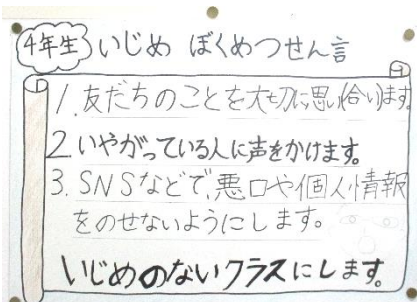 4年生 いじめ ぼくめつせん言
1.友だちのことを大切に思い合います。
2.いやがっている人に声をかけます。
3.SNSなどで、悪口や個人情報
をのせないようにします。
いじめのないクラスにします。